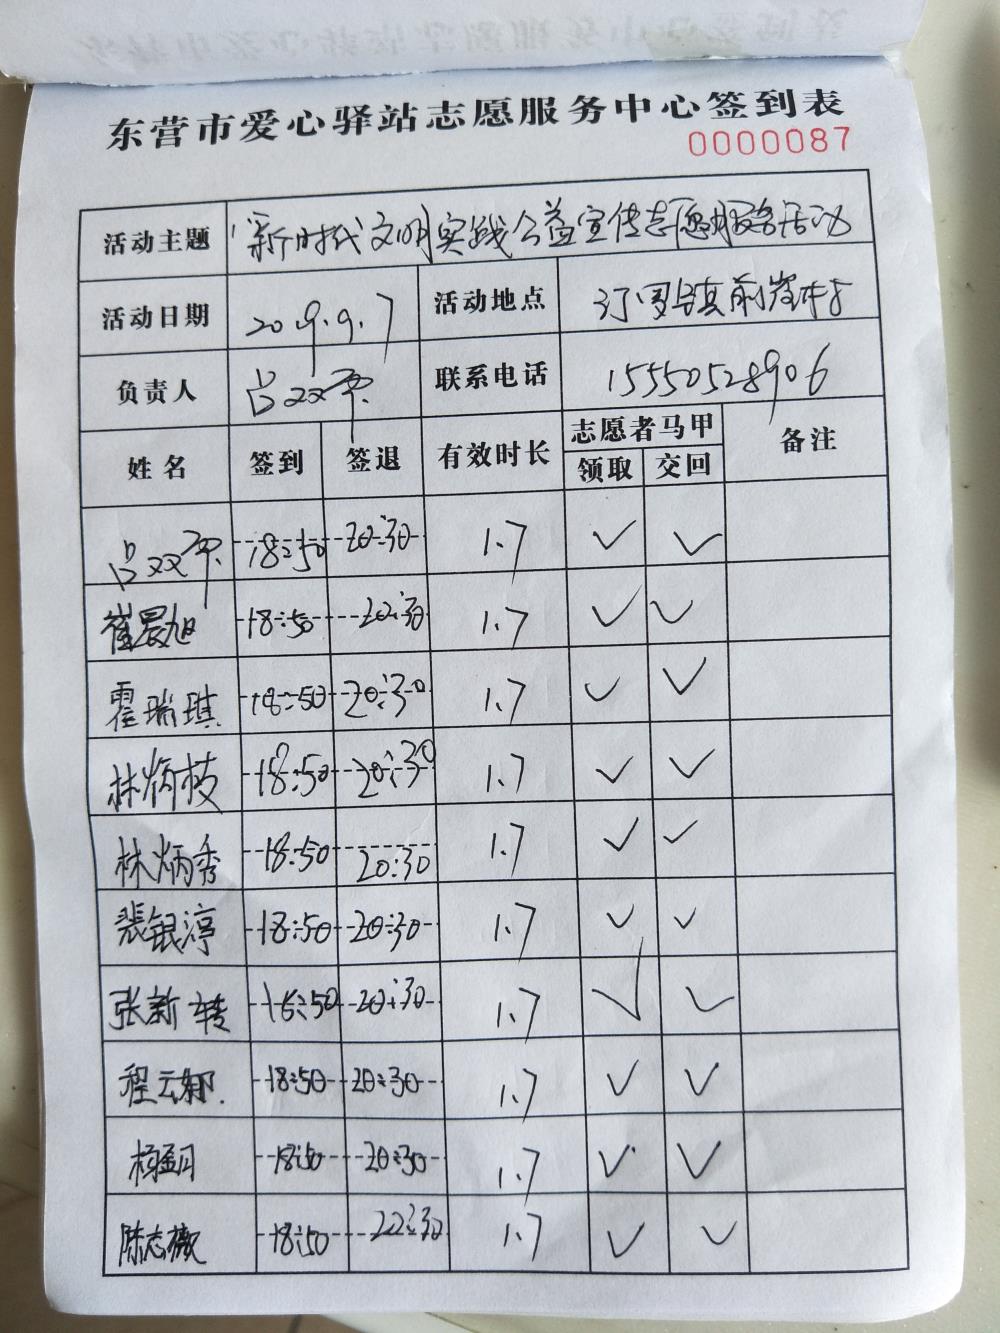 东营市爱心驿站志愿服务中心签到表
0000087
活动主题 新时代文明实践公益宣传志愿服务活动
活动日期 2019.9.7 活动地点 汀罗镇前崔村
负责人 吕双平 联系电话 15550528906
姓名 签到 签退 有效时长 志愿者马甲 领取 交回 备注
吕双平 18:50 20:30 1.7 ✓ ✓
崔晨旭 18:50 20:30 1.7 ✓ ✓
霍瑞琪 18:50 20:30 1.7 ✓ ✓
林炳枝 18:50 20:30 1.7 ✓ ✓
林炳秀 18:50 20:30 1.7 ✓ ✓
裴银淳 18:50 20:30 1.7 ✓ ✓
张新转 18:50 20:30 1.7 ✓ ✓
程云娜 18:50 20:30 1.7 ✓ ✓
18:50 20:30 1.7 ✓ ✓
陈志薇 18:50 22:30 1.7 ✓ ✓